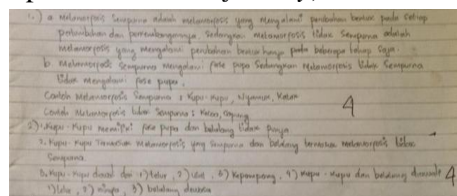 1.) a. metamorfosis sempurna adalah metamorfosis yang mengalami perubahan bentuk pada setiap
pertumbuhan dan perkembangannya, sedangkan metamorfosis tidak sempurna adalah
metamorfosis yang mengalami perubahan bentuk hanya pada beberapa tahap saja.
b. Metamorfosis sempurna mengalami fase pupa sedangkan metamorfosis tidak sempurna
tidak mengalami fase pupa.
Contoh Metamorfosis sempurna : Kupu-kupu, Nyamuk, Katak
Contoh Metamorfosis tidak sempurna : Kecoa, Capung
4
2) 1. Kupu-kupu memiliki fase pupa dan belalang tidak punya
2. Kupu-kupu termasuk metamorfosis yang sempurna dan belalang termasuk metamorfosis tidak
Sempurna
3. Kupu-kupu diawali dari 1) telur, 2) ulat, 3) kepompong, 4) kupu-kupu dan belalang diawali
1) telur, 2) nimfa, 3) belalang dewasa
4